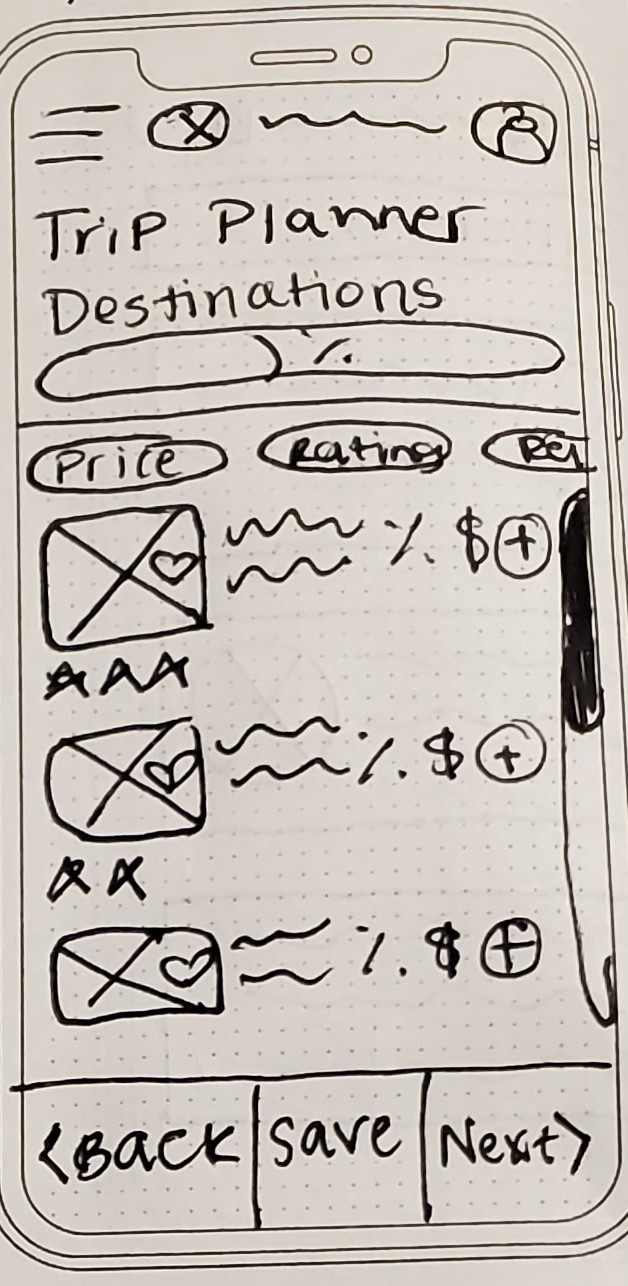 Trip Planner
Destinations
%
Price Rating
% $ +
% $ +
% $ +
<Back Save Next>